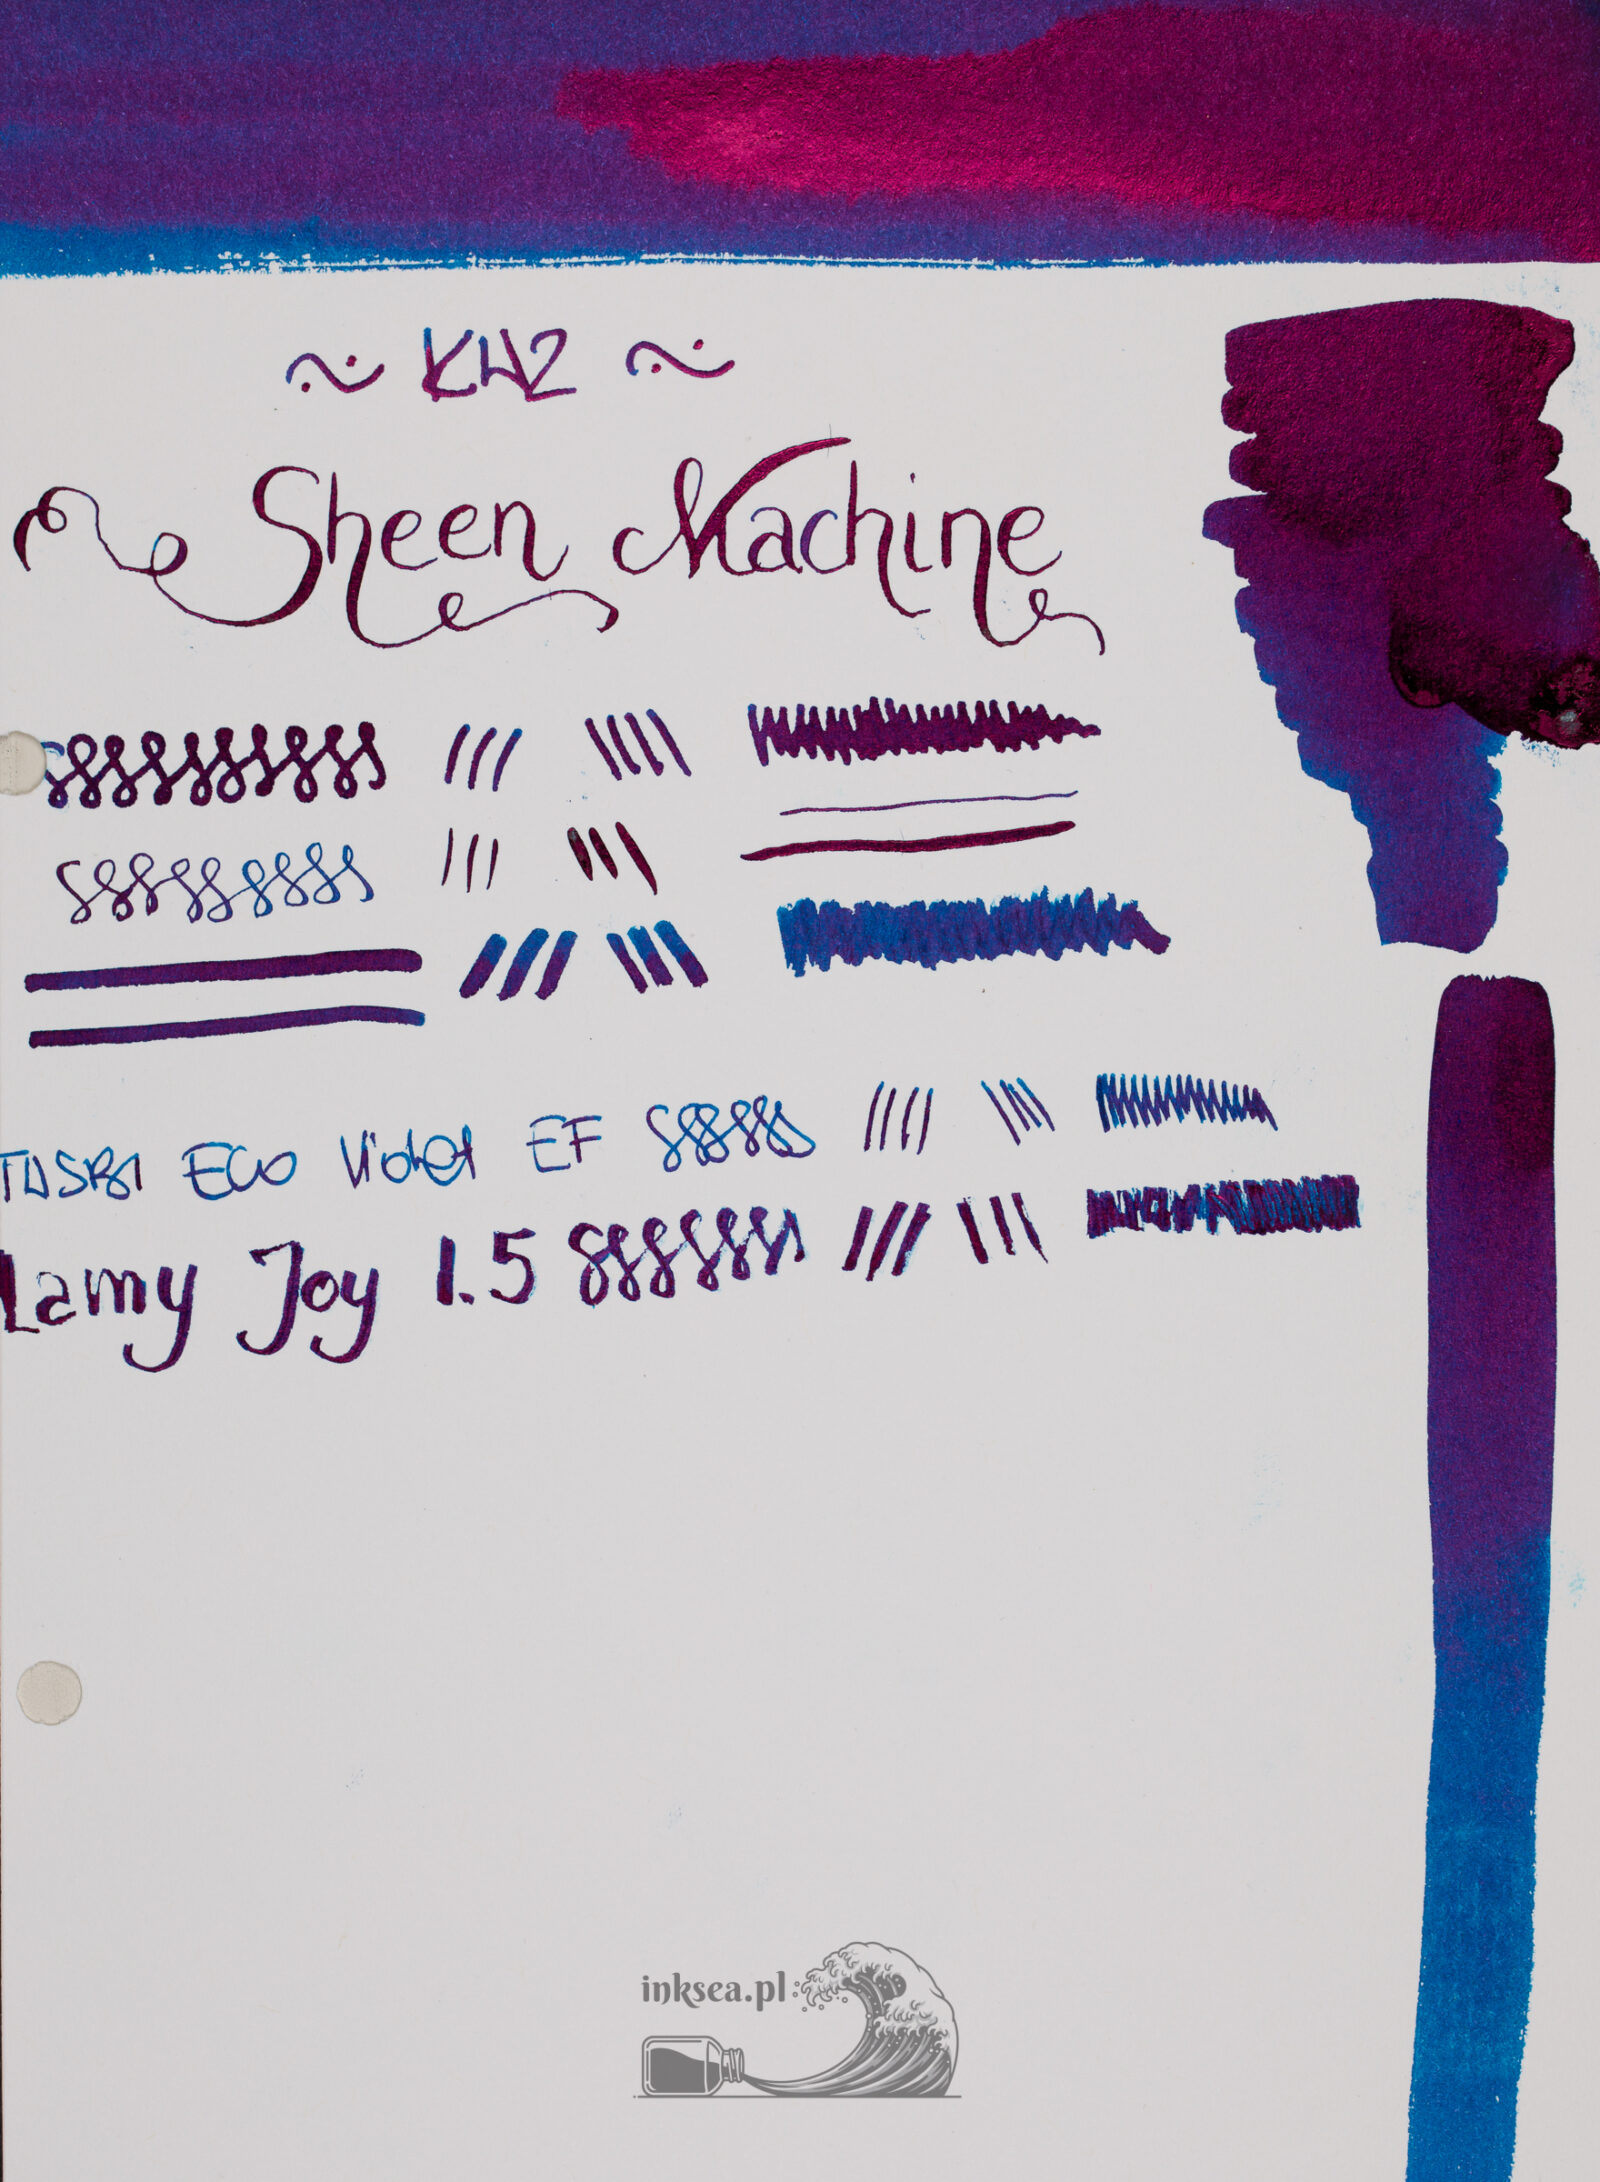 ~ KWZ ~
Sheen Machine
TWSBI ECO Violet EF
Lamy Joy 1.5
inksea.pl